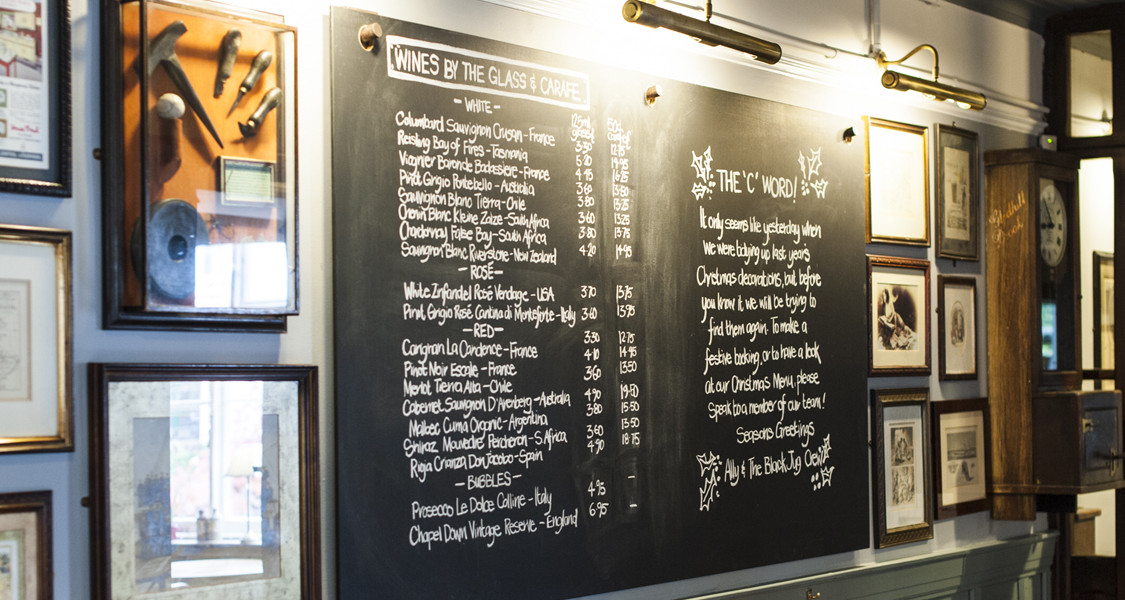 WINES BY THE GLASS & CARAFE.
- WHITE -
125ml glass 50cl carafe
Columbard Sauvignon Crusan - France 3.30 12.75
Reisling Bay of Fires - Tasmania 5.20 19.95
Viognier Barande Badassiere - France 4.45 16.25
Pinot Grigio Pontebello - Australia 3.60 13.50
Sauvignon Blanc Tierra - Chile 3.80 13.25
Chenin Blanc Kleine Zalze - South Africa 3.60 13.25
Chardonnay False Bay - South Africa 3.80 13.75
Sauvignon Blanc Riverstone - New Zealand 4.20 14.95
- ROSÉ -
White Zinfandel Rosé Vendage - USA 3.70 13.75
Pinot Grigio Rosé Cantina di Monteforte - Italy 3.60 13.95
- RED -
Carignan La Cadence - France 3.30 12.75
Pinot Noir Escale - France 4.10 14.95
Merlot Tierra Alta - Chile 3.60 13.50
Cabernet Sauvignon D'Arenberg - Australia 4.90 19.50
Malbec Cuma Organic - Argentina 3.80 15.50
Shiraz Mouvedre Percheron - S. Africa 3.60 13.50
Rioja Crianza Don Jacobo - Spain 4.90 18.75
- BUBBLES -
Prosecco Le Dolce Colline - Italy 4.95 -
Chapel Down Vintage Reserve - England 6.95 -
THE 'C' WORD!
It only seems like yesterday when
we were tidying up last year's
Christmas decorations, but, before
you know it we will be trying to
find them again. To make a
festive booking, or to have a look
at our Christmas Menu, please
speak to a member of our team!
Seasons Greetings
Ally & The Black Jug Crew